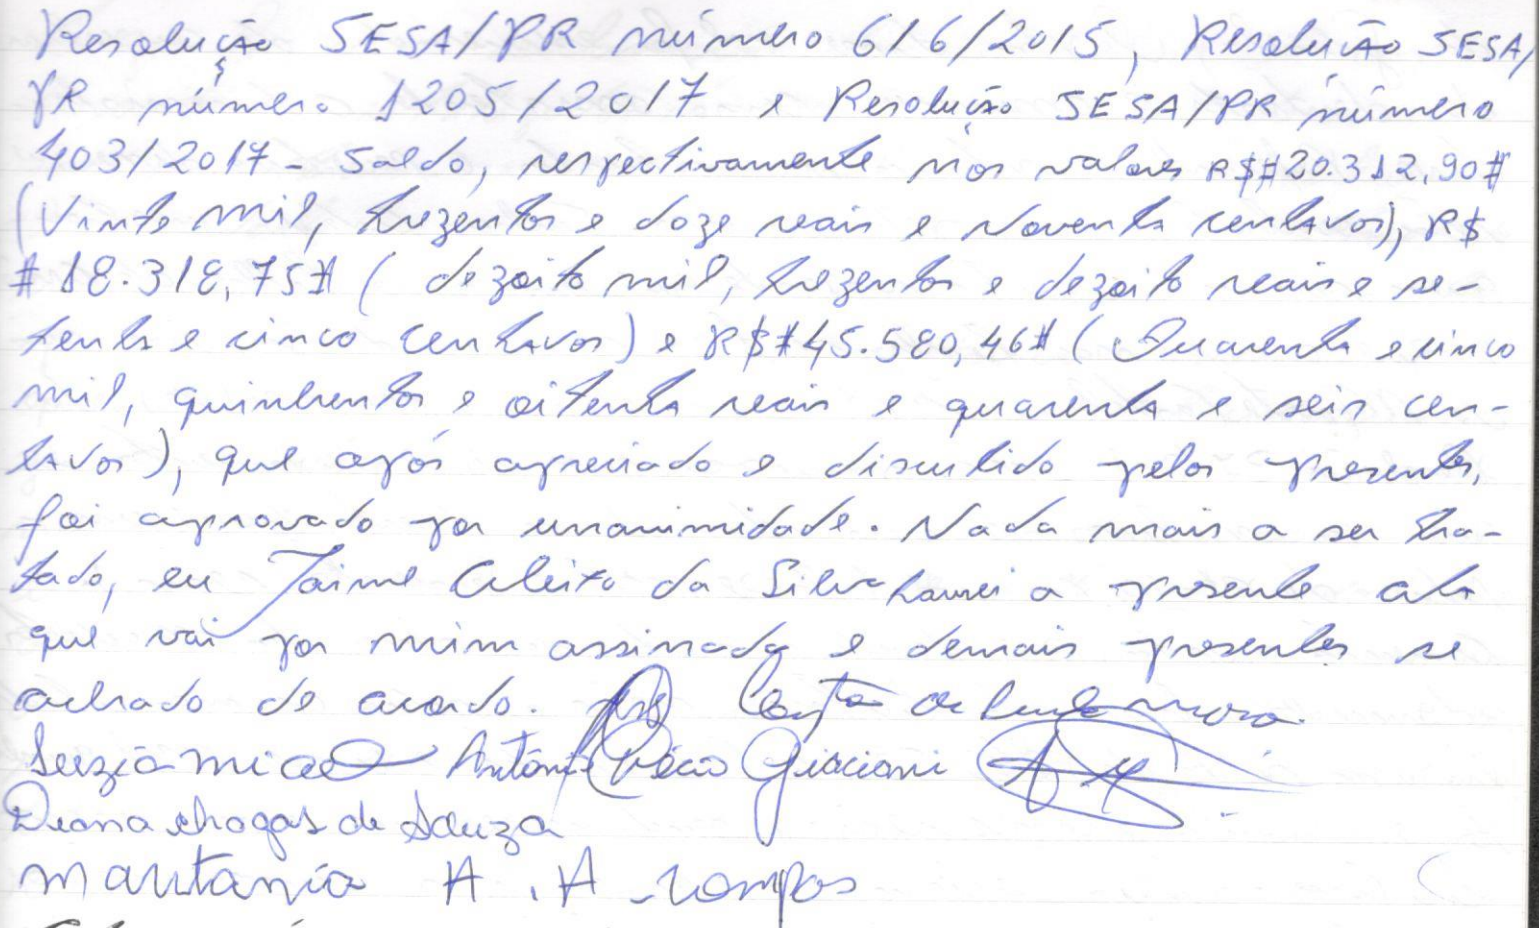 Resolução SESA/PR número 616/2015, Resolução SESA/
PR número 1205/2017 e Resolução SESA/PR número
403/2017 - Saldo, respectivamente nos valores R$#20.312,90#
(Vinte mil, trezentos e doze reais e noventa centavos), R$
#18.318,75# (dezoito mil, trezentos e dezoito reais e se-
tenta e cinco centavos) e R$#45.580,46# (Quarenta e cinco
mil, quinhentos e oitenta reais e quarenta e seis cen-
tavos), que após apreciado e discutido pelos presentes,
foi aprovado por unanimidade. Nada mais a ser tra-
tado, eu Jaime da Silva lavrei a presente ata
que vai por mim assinada e demais presentes se
achado de acordo.
Antônio Décio
Diana Chagas de Souza
A. A.